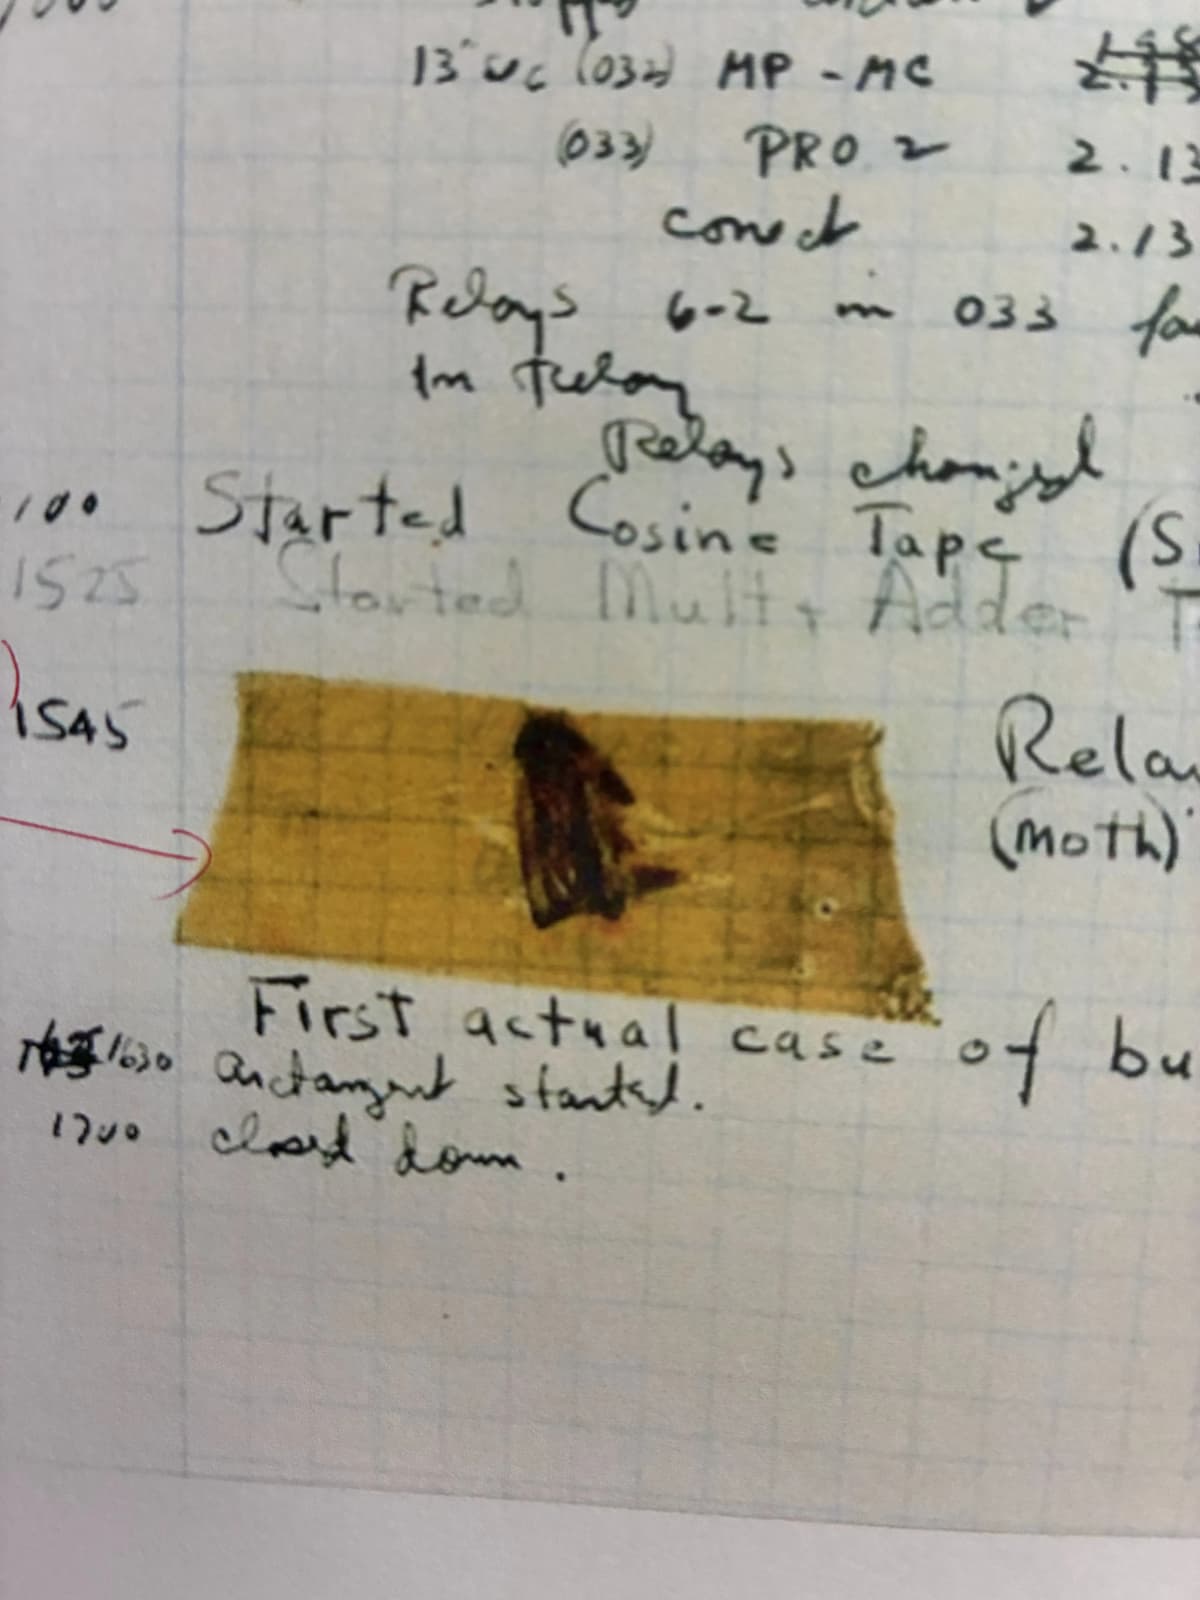 13" UC (032) MP - MC
(033) PRO 2 2.13
conect 2.13
Relays 6-2 in 033
In Relay
Relays changed
Started Cosine Tape (S
1525 Started Mult + Adder T
1545 Rela
(moth)
First actual case of bu
1630 arctangent started.
1700 closed down.